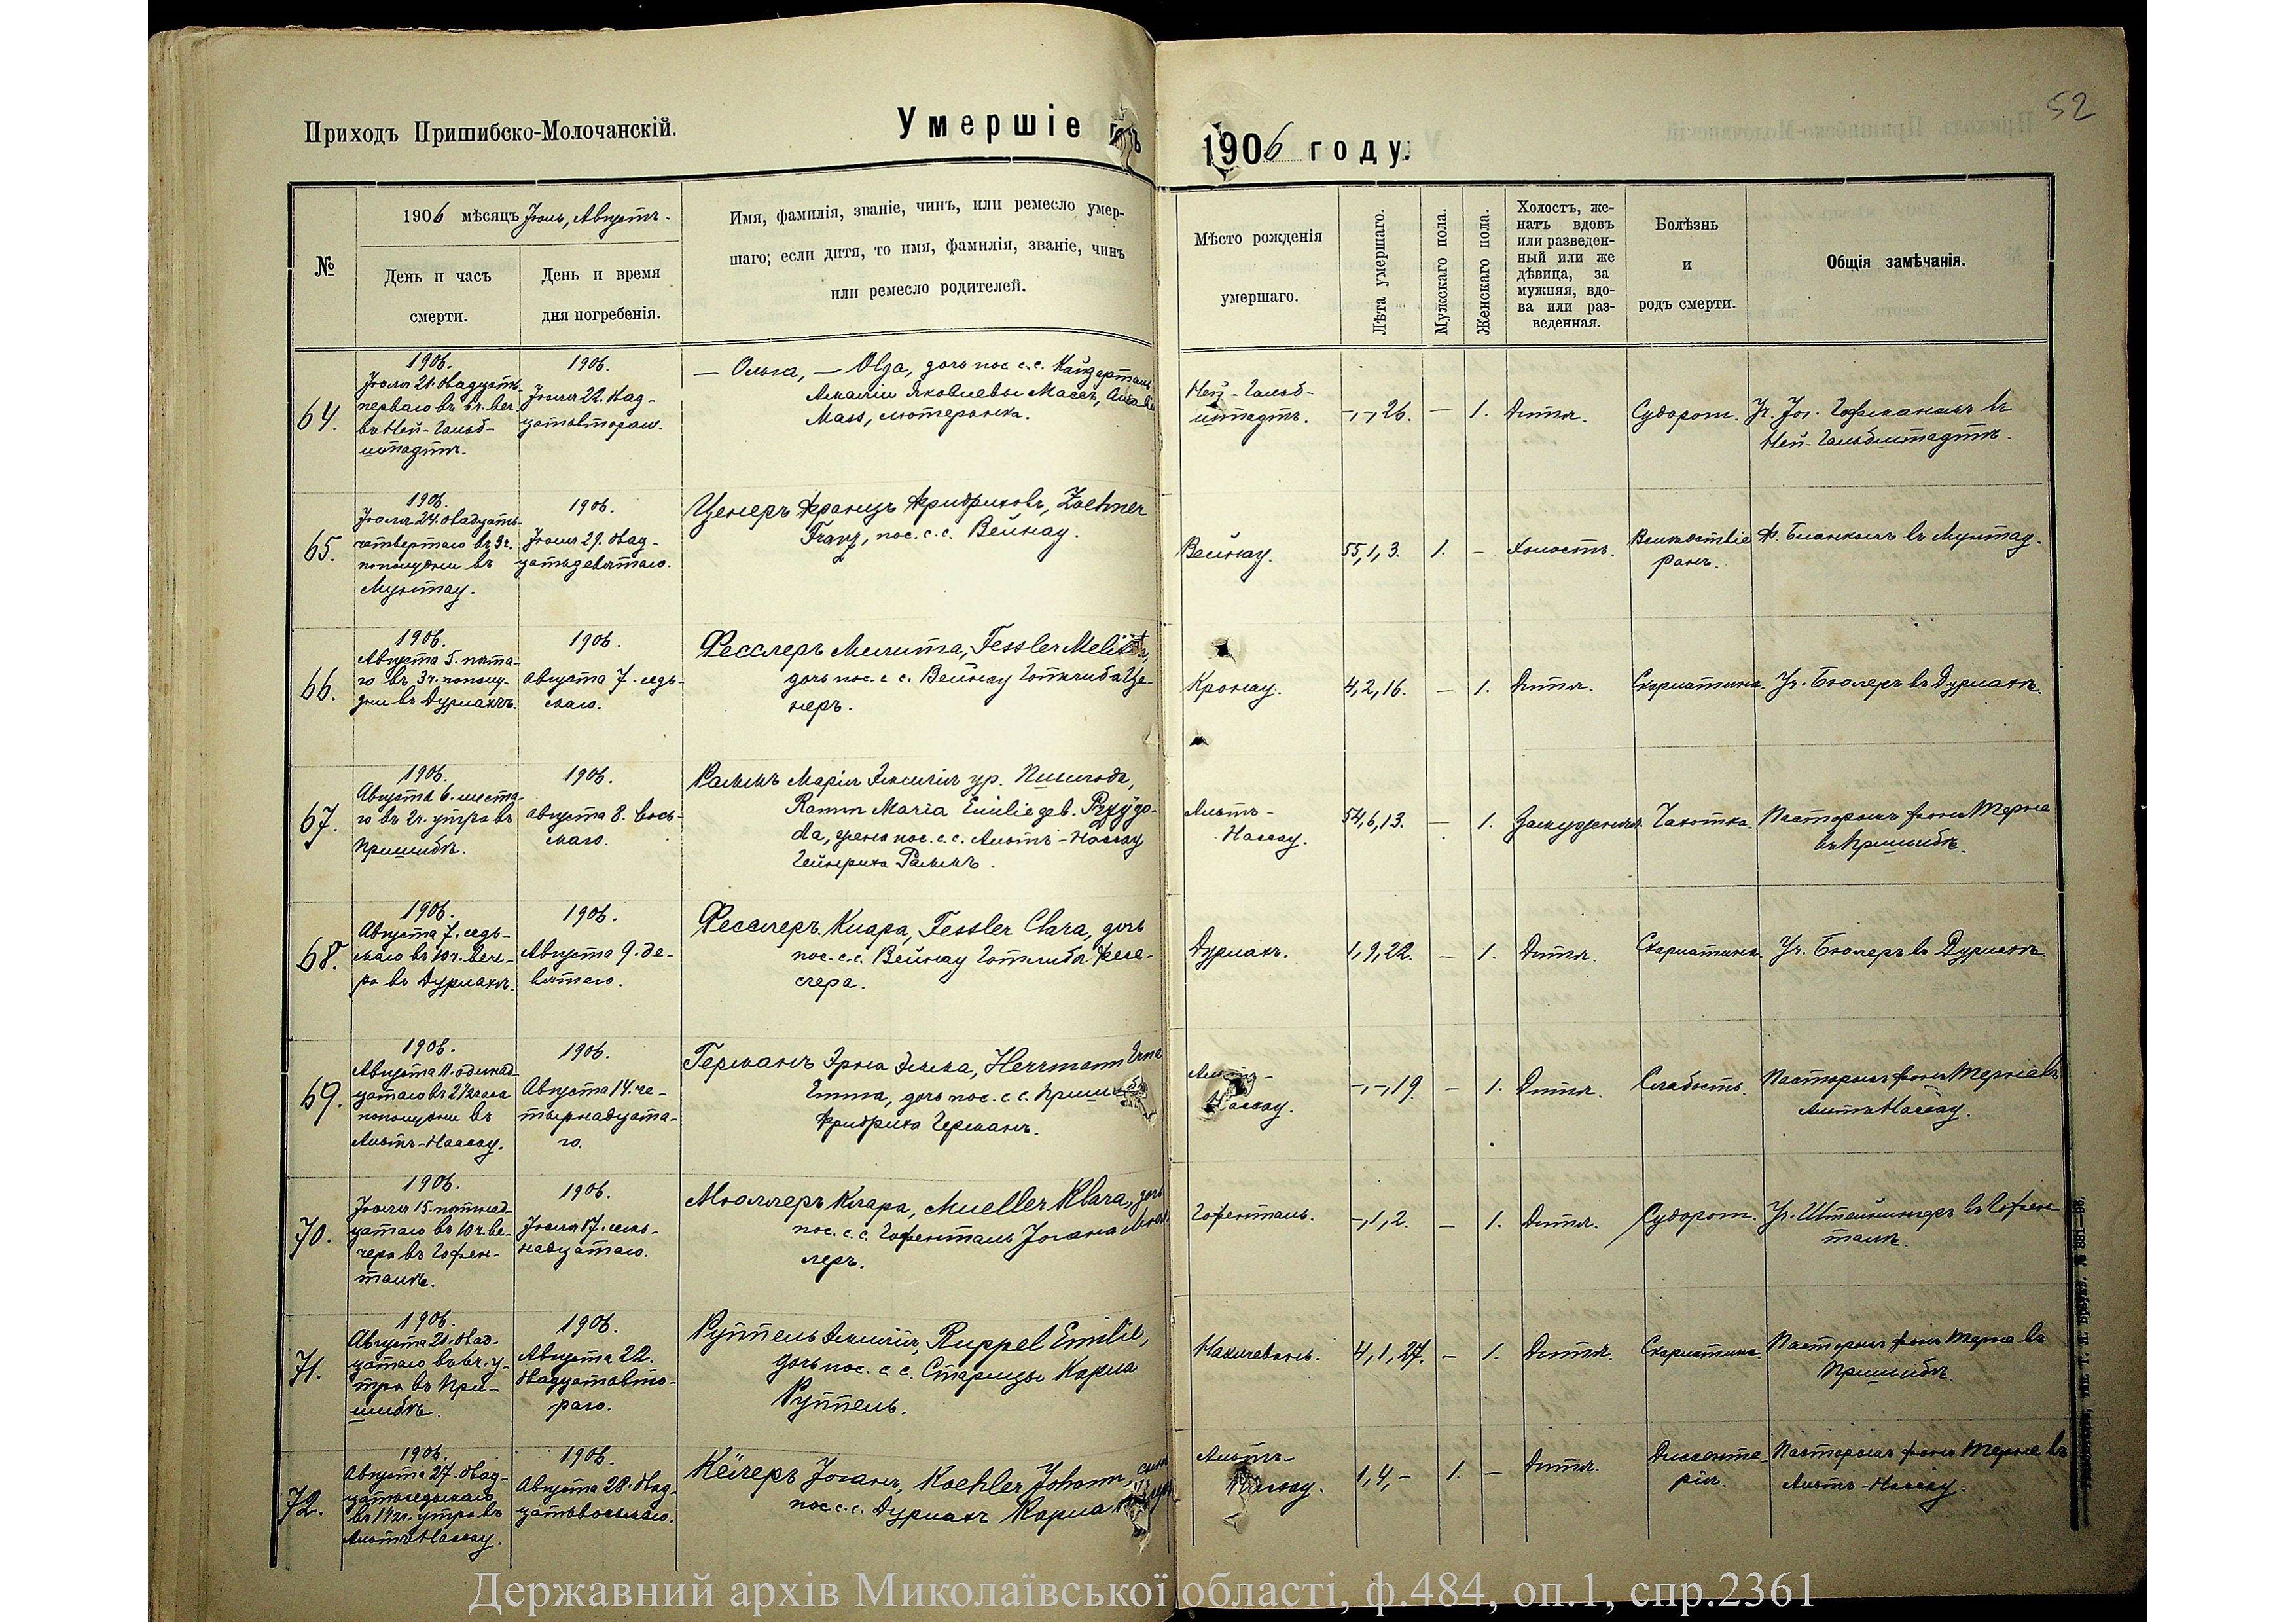 52
Приходъ Пришибско-Молочанскій.
Умершіе
1906 году.
№
1906 мѣсяцъ Іюль, Августъ.
День и часъ
смерти.
День и время
дня погребенія.
Имя, фамилія, званіе, чинъ, или ремесло умер-
шаго; если дитя, то имя, фамилія, званіе, чинъ
или ремесло родителей.
Мѣсто рожденія
умершаго.
Лѣта умершаго.
Мужскаго пола.
Женскаго пола.
Холостъ, же-
натъ вдовъ
или разведен-
ный или же
дѣвица, за
мужняя, вдо-
ва или раз-
веденная.
Болѣзнь
и
родъ смерти.
Общія замѣчанія.
64.
1906.
Іюля 21. двадцать
перваго въ 5ч. веч.
въ Ней-Гальб-
штадтѣ.
1906.
Іюля 22. двад-
цатьвтораго.
— Ольга, — Olga, дочь пос. с.с. Кайзерталь
Амаліи Яковлевы Массъ,
Mass, лютеранка.
Ней-Гальб-
штадтъ.
-,-,26.
—
1.
Дитя.
Судорог.
Уч. Іог. Гофманомъ въ
Ней-Гальбштадтѣ.
65.
1906.
Іюля 24. двадцать-
четвертаго въ 3ч.
пополудни въ
Мунтау.
1906.
Іюля 29. двад-
цатьдевятаго.
Ценеръ Францъ Фридриховъ, Zoehner
Franz, пос. с.с. Вейнау.
Вейнау.
55,1,3.
1.
—
Холостъ.
Вслѣдствіе
ранъ.
Ф. Бланкомъ въ Мунтау.
66.
1906.
Августа 5. пята-
го въ 3ч. пополу-
дни въ Дурлахѣ.
1906.
Августа 7. седь-
маго.
Фесслеръ Мелита, Fessler Melitta,
дочь пос. с с. Вейнау Готлиба Це-
неръ.
Кронау.
4,2,16.
—
1.
Дитя.
Скарлатина.
Уч. Бюлеръ въ Дурлахѣ.
67.
1906.
Августа 6. шеста-
го въ 2ч. утра въ
Пришибѣ.
1906.
Августа 8. вось-
маго.
Раммъ Марія Эмилія ур. Пшигода,
Ramm Maria Emilie geb. Przygo-
da, жена пос. с.с. Альтъ-Нассау
Гейнриха Раммъ.
Альтъ-
Нассау.
54,6,13.
—
1.
Замужняя.
Чахотка.
Пасторомъ фонъ Терне
въ Пришибѣ.
68.
1906.
Августа 7. седь-
маго въ 10ч. вече-
ра въ Дурлахѣ.
1906.
Августа 9. де-
вятаго.
Фесслеръ Клара, Fessler Clara, дочь
пос. с.с. Вейнау Готлиба Фесс-
лера.
Дурлахъ.
1,9,22.
—
1.
Дитя.
Скарлатина.
Уч. Бюлеръ въ Дурлахѣ.
69.
1906.
Августа 11. одинад-
цатаго въ 2½ часа
пополудни въ
Альтъ-Нассау.
1906.
Августа 14. че-
тырнадцата-
го.
Германъ Эрна Эмма, Herrmann Erna
Emma, дочь пос. с с.
Фридриха Германъ.
Нассау.
-,-,19.
—
1.
Дитя.
Слабость.
Пасторомъ фонъ Терне въ
Альтъ Нассау.
70.
1906.
Іюля 15. пятнад-
цатаго въ 10ч. ве-
чера въ Гофен-
талѣ.
1906.
Іюля 17. семь-
надцатаго.
Мюллеръ Клара, Mueller Klara, дочь
пос. с.с. Гофенталь Іогана Мюл-
леръ.
Гофенталь.
-,1,2.
—
1.
Дитя.
Судорог.
Уч. Штейнингеръ въ Гофен-
талѣ.
71.
1906.
Августа 20. двад-
цатаго въ 6ч. у-
тра въ При-
шибѣ.
1906.
Августа 22.
двадцатьвто-
раго.
Руппель Эмилія, Ruppel Emilie,
дочь пос. с с. Старицы Карла
Руппель.
Нахичевань.
4,1,27.
—
1.
Дитя.
Скарлатина.
Пасторомъ фонъ Терне въ
Пришибѣ.
72.
1906.
Августа 27. двад-
цатьседьмаго
утра въ
Альтъ Нассау.
1906.
Августа 28. двад-
цатьвосьмаго.
Кёлеръ Іоганъ, Koehler Johann, сынъ
пос. с.с. Дурлахъ Карла
Альтъ-
Нассау.
1,4,-
1.
—
Дитя.
Диссенте-
рія.
Пасторомъ фонъ Терне въ
Альтъ-Нассау.
Державний архів Миколаївської області, ф.484, оп.1, спр.2361